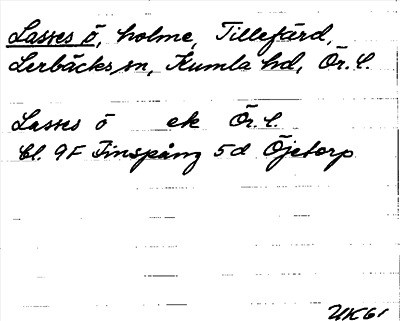 Lasses ö, holme, Tillefärd,
Lerbäcks sn, Kumla hd, Ör. l.
Lasses ö ek Ör. l.
bl. 9F Finspång 5d Öjetorp
UK61